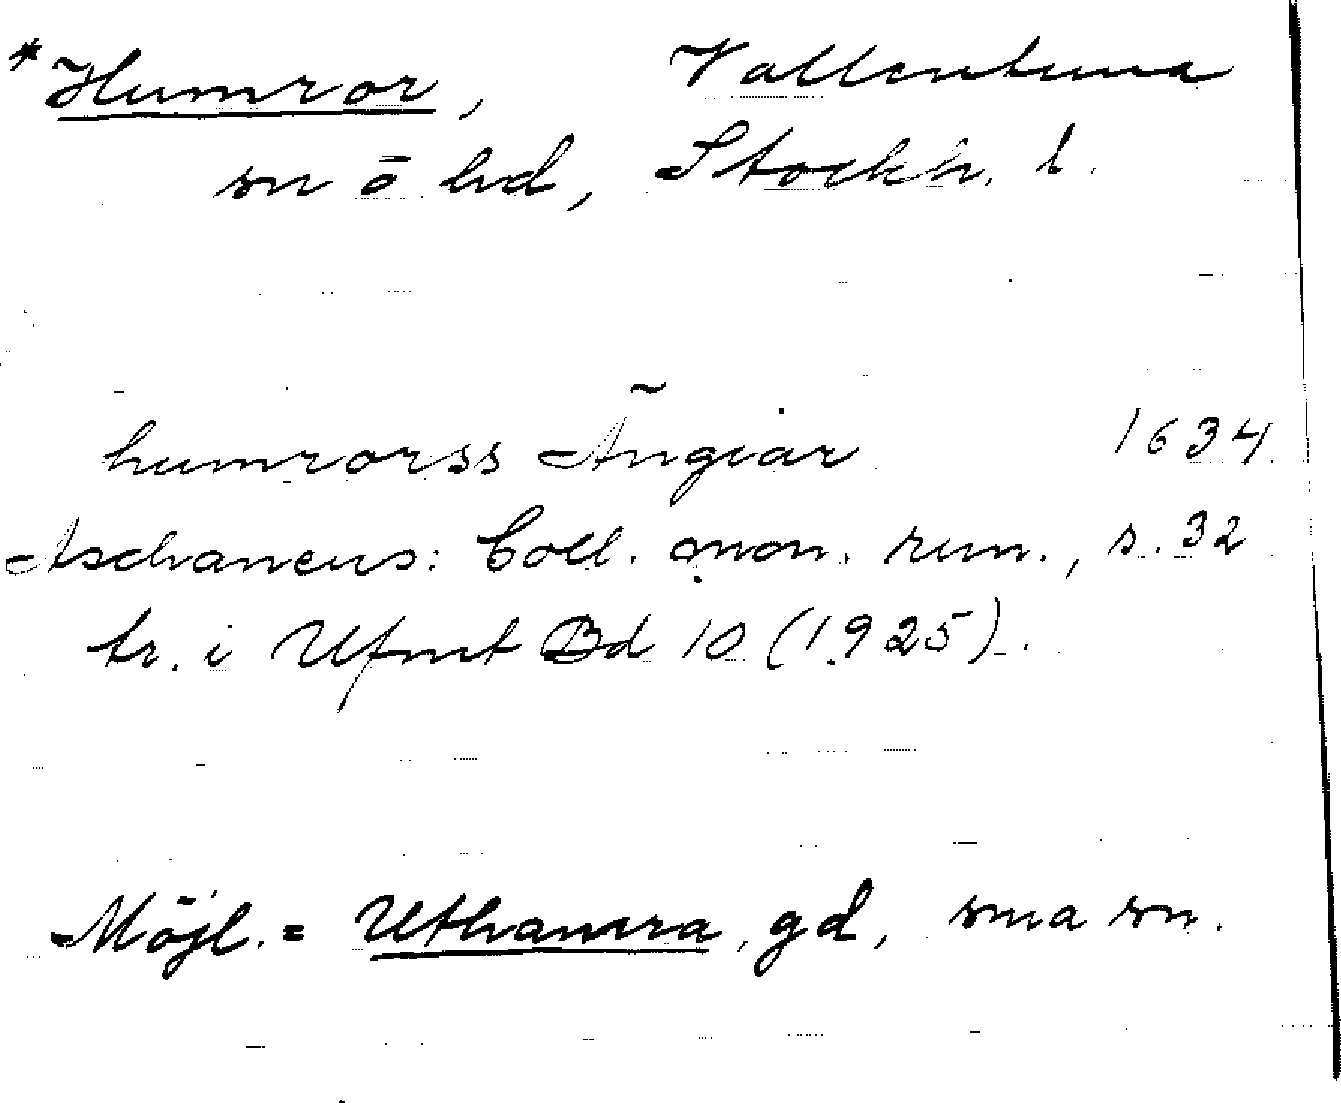 *Humror, Vallentuna
sn ō hd, Stockh. l.
humrorss Ängiar 1634
Aschaneus: Coll. mon. run., s. 32
tr. i Ufmt Bd 10 (1925).
Möjl. = Uthamra, gd, sma sn.